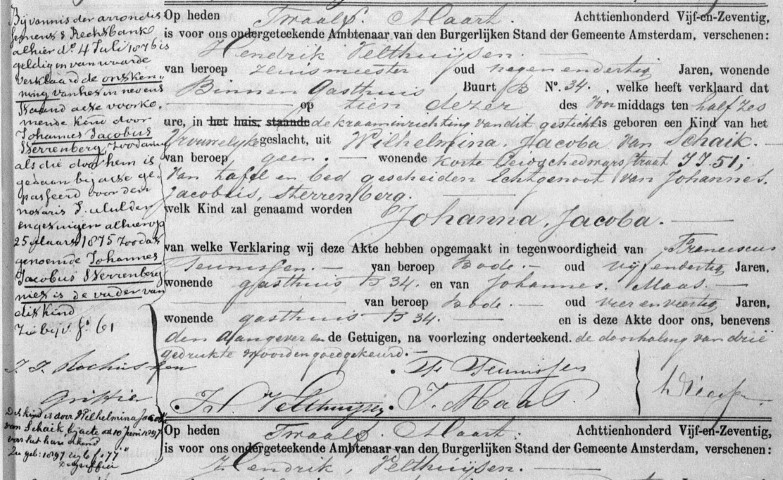 Bij vonnis der arrondis
sements Rechtbank
alhier dd. 4 Juli 1876 is
geldig en van waarde
verklaard de ontken
ning van het in nevens
staande acte voorko
mende kind door
Johannes Jacobus
Sterrenberg zoodanig
als die door hem is
gedaan bij acte ge
passeerd voor den
notaris
alhier op
25 Maart 1875 zoodat
genoemde Johannes
Jacobus Sterrenberg
niet is de vader van
dit kind
Zie bijv fo. 61
Griffier
Dit kind is door Wilhelmina Jacoba
van Schaik bij acte dd 10 Juni 1897
voor het hare erkend
Zie geb: 1897
de Griffier
Op heden Twaalf Maart. Achttienhonderd Vijf-en-Zeventig,
is voor ons ondergeteekende Ambtenaar van den Burgerlijken Stand der Gemeente Amsterdam, verschenen:
Hendrik Velthuijsen.
van beroep oud negenendertig Jaren, wonende
Binnen Gasthuis Buurt B No. 34., welke heeft verklaard dat
op tien dezer des Voormiddags ten half zes
ure, in het huis, staande de kraaminrichting van dit gesticht is geboren een Kind van het
Vrouwelijke geslacht, uit Wilhelmina, Jacoba van Schaik.
van beroep geen. wonende Korte straat JJ 51;
van tafel en bed gescheiden Echtgenoot van Johannes.
Jacobus, Sterrenberg.
welk Kind zal genaamd worden Johanna, Jacoba.
van welke Verklaring wij deze Akte hebben opgemaakt in tegenwoordigheid van Franciscus
Teunissen. van beroep Bode. oud vijfendertig Jaren,
wonende gasthuis B 34. en van Johannes. Maas.
van beroep Bode. oud vier en veertig Jaren,
wonende gasthuis B 34. en is deze Akte door ons, benevens
den Aangever en de Getuigen, na voorlezing onderteekend. de doorhaling van drie
gedrukte woorden goedgekeurd.
Fr Teunissen
H. Velthuijsen J. Maas
Op heden Twaalf Maart. Achttienhonderd Vijf-en-Zeventig,
is voor ons ondergeteekende Ambtenaar van den Burgerlijken Stand der Gemeente Amsterdam, verschenen:
Hendrik, Velthuijsen.